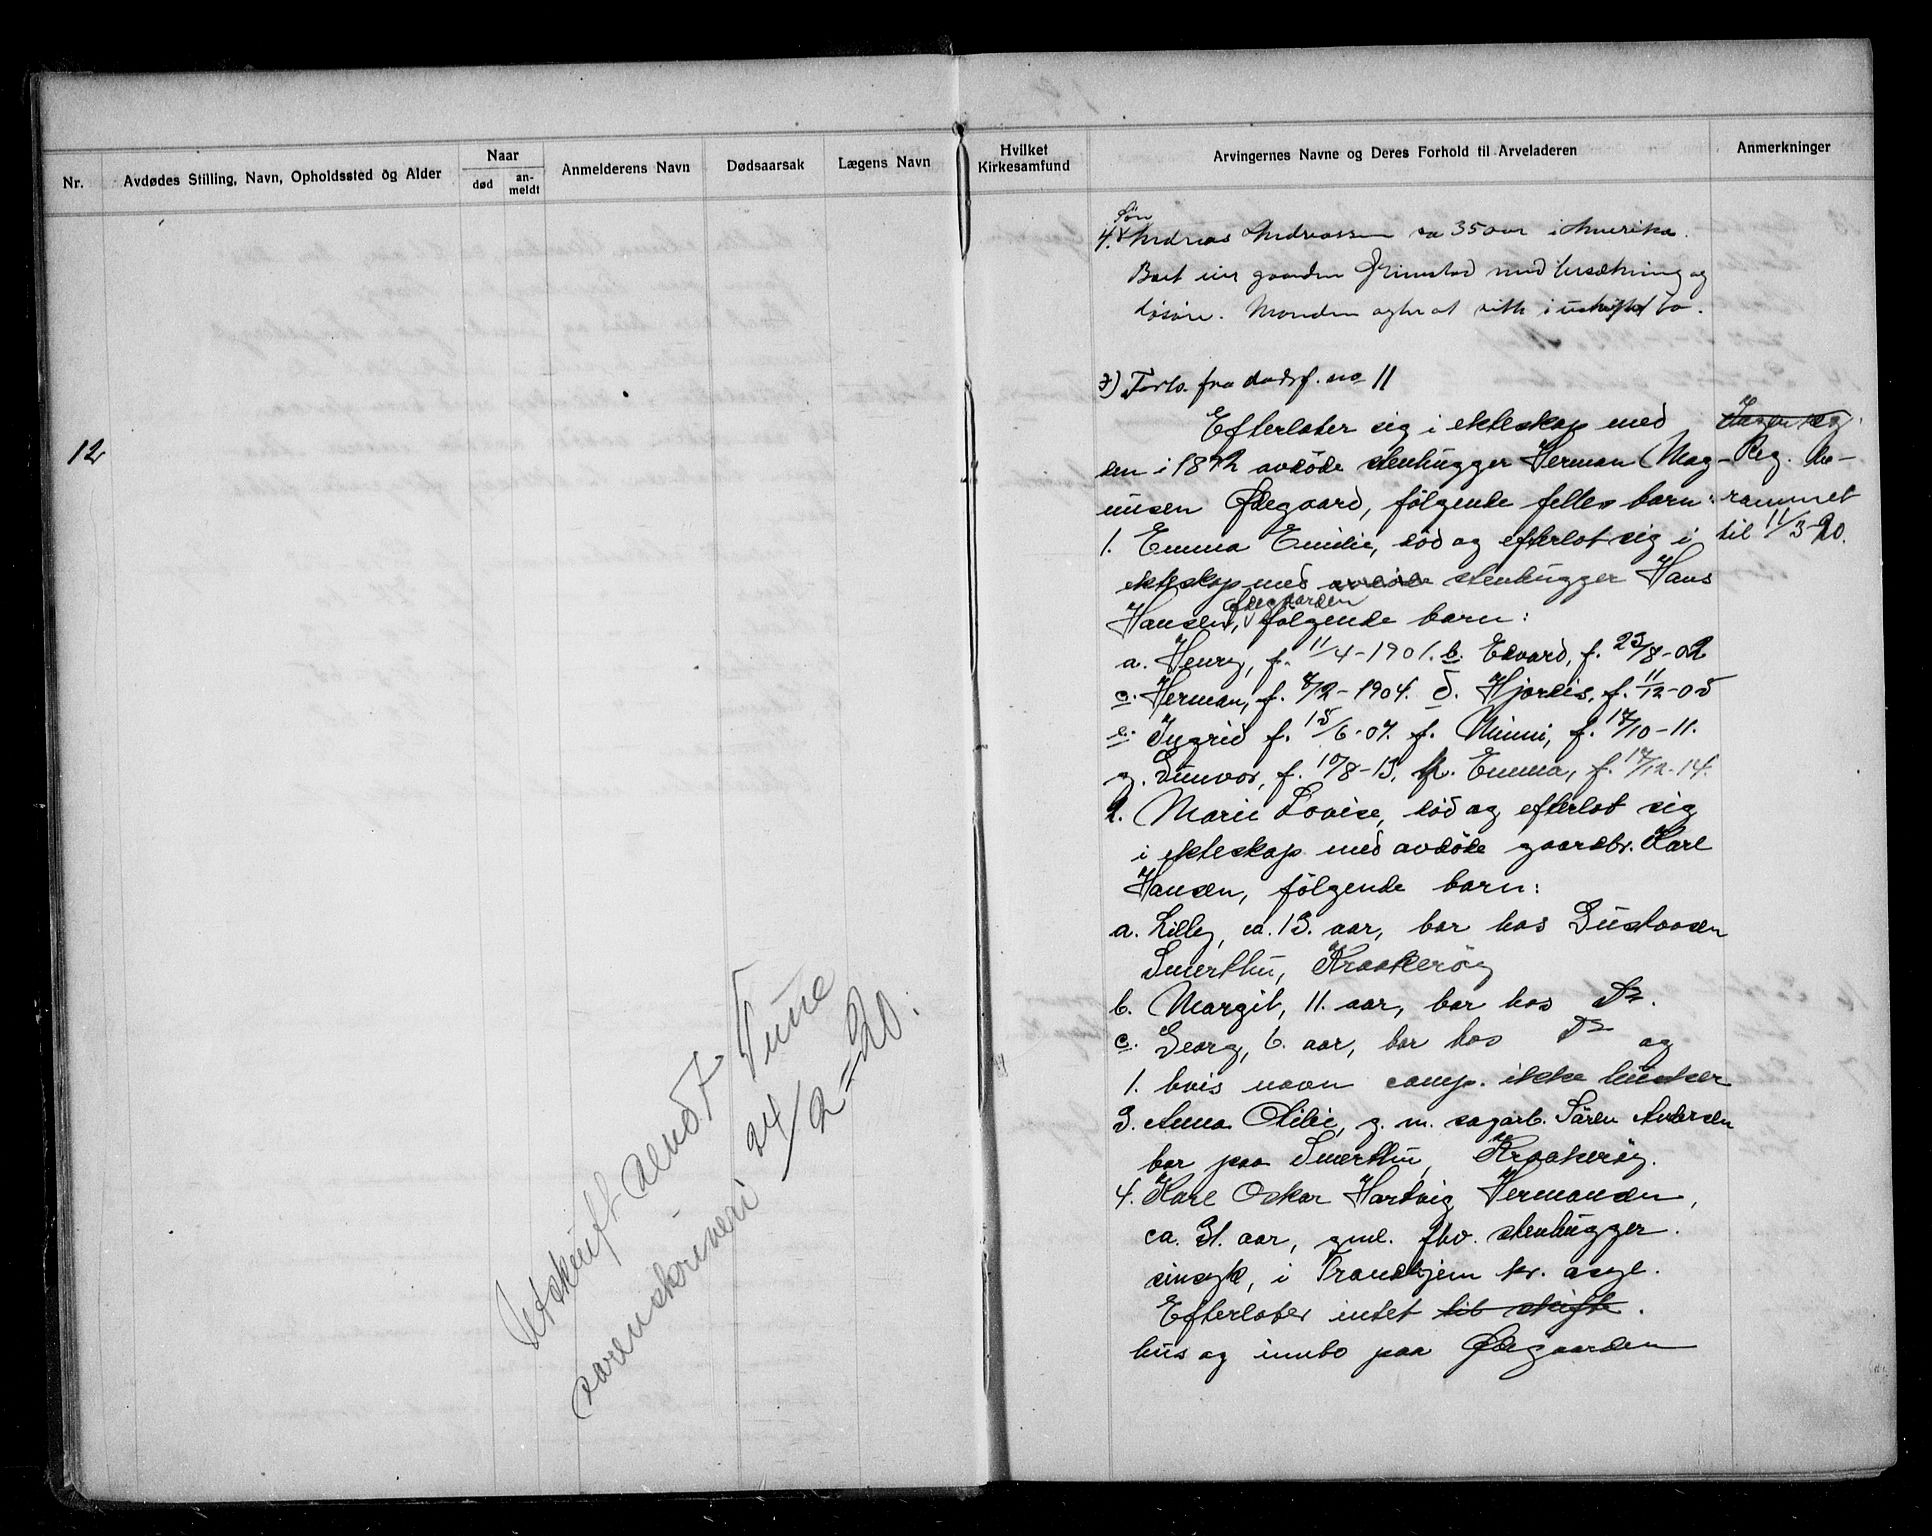 Nr.
Avdødes Stilling, Navn, Opholdssted og Alder
Naar
død
an-
meldt
Anmelderens Navn
Dødsaarsak
Lægens Navn
Hvilket
Kirkesamfund
Arvingernes Navne og Deres Forhold til Arveladeren
Anmerkninger
12
Utskrift sendt Tune
sorenskriveri 24/2-20.
Søn
4. Andreas Andreassen ca 35 aar i Amerika.
Boet eier gaarden Grimstad med besætning og
løsøre. Manden agter at sitte i uskiftet bo.
Forts. fra dødsf. no 11
Efterlater sig i ekteskap med
den i 1872 avdøde stenhugger Herman Mag-
nusen Ødegaard, følgende felles barn:
1. Emma Emilie, død og efterlot sig i
ekteskap med avdøde stenhugger Hans
Ødegaarden
Hansen, følgende barn:
a. Henry, f. 11/4-1901. b. Edvard, f. 23/8-02
c. Herman, f. 7/2-1904. d. Hjordis, f. 11/12-05
e. Ingrid f. 15/6-07. f. Minni, f. 17/10-11.
g. Gunvor, f. 10/8-13, h. Emma, f. 17/12-14.
2. Marie Lovise, død og efterlot sig
i ekteskap med avdøde gaardbr. Karl
Hansen, følgende barn:
a. Lilly, ca. 13. aar, bor hos Gustavsen
Smerthu, Kraakerøy
b. Margit, 11. aar, bor hos Do.
c. Georg, 6. aar, bor hos Do og
1. hvis navn comp. ikke husker
3. Anna Otilie, g. m. sagarb. Søren Andersen
bor paa Smerthu, Kraakerøy.
4. Karl Oskar Hartvig Hermansen,
ca. 31. aar, gml. fhv. stenhugger.
sinsyk, i Trondhjem kr. asyl.
Efterlater intet til skifte.
hus og innbo paa Ødegaarden
Reg. be-
rammet
til 11/3-20.